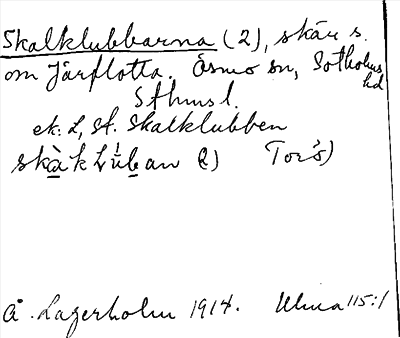 Skalklubbarna (2), skär s.
om Järflotta. Ösmo sn, Sotholms hd
Sthms l.
ek: L, St. Skalklubben
Torö)
Å. Lagerholm 1914. Ulma 115:1